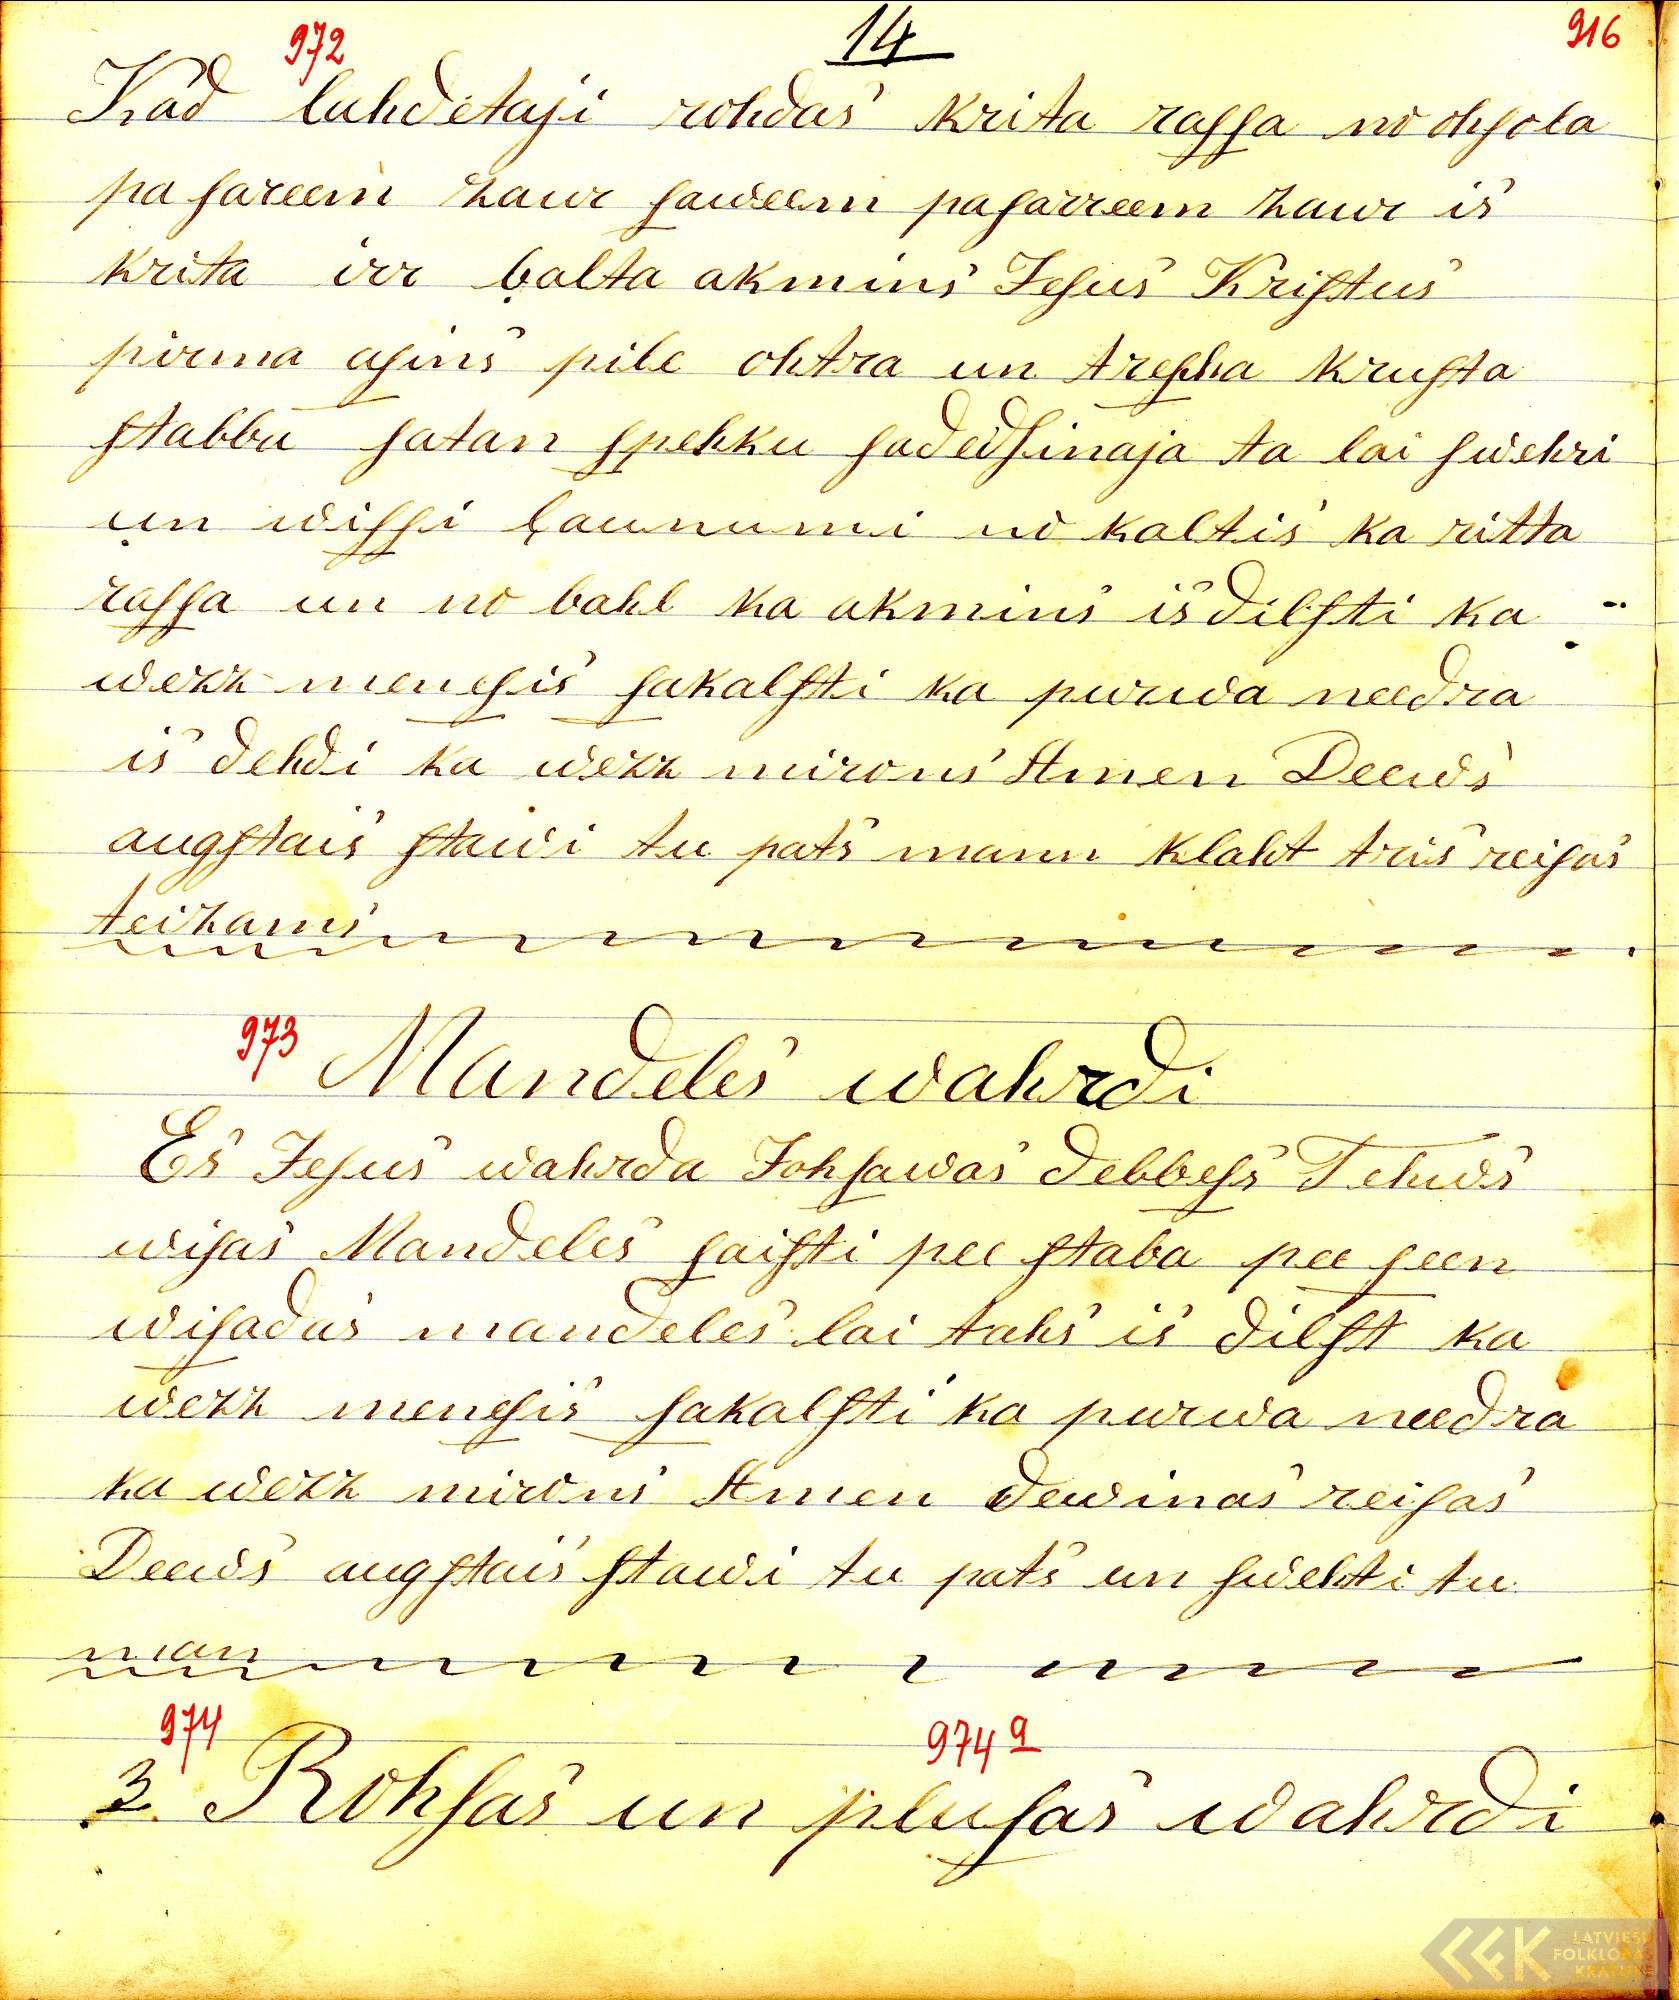 972 14 916
Kad luhdetaji rohdas krita raſſa no ohſola
pa ſareem zaur ſaweem paſarreem zaur is
krita irr balta akmins Jeſus Kriſtus
pirma aſins pile ohtra un treſcha kruſta
ſtabbu ſatan ſpehku ſadedſinaja ta lai ſwehri
un wiſſi launumi no kaltis ka ritta
raſſa un no bahl ka akmins is dilſti ka
wezz meneſis ſakalſti ka purwa needra
is dehdi ka wezz mirons Amen Deews
augſtais ſtawi tu pats mann klaht tris reiſas
teizams
973 Mandeles wahrdi
Es Jeſus wahrda Johſawas debbeſs Tehws
wiſas Mandeles ſaiſti pee ſtaba pee ſeen
wiſadas mandeles lai tahs is dilſt ka
wezz meneſis ſakalſti ka purwa needra
ka wezz mirons Amen dewinas reiſas
Deews augſtais ſtawi tu pats un ſwehti tu
man
974 974 a
3. Rohſas un pluſas wahrdi
LATVIEŠU
FOLKLORAS
KRĀTUVE